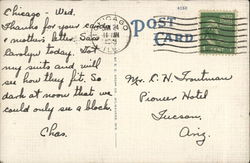 Chicago - Wed.
Thanks for your card
& mother's letter. Saw
Carolyn today. Got
my suits and will
see how they fit. So
dark at noon that we
could only see a block.
Chas.
POST
CARD
CHICAGO
ILL.
Mr. L. H. Troutman
Pioneer Hotel
Tucson,
Ariz.